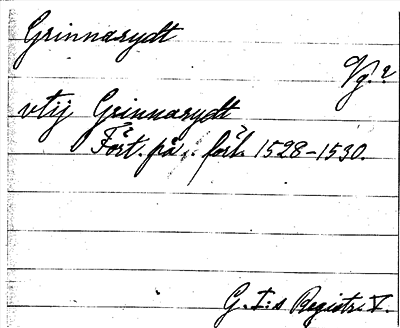 Grinnarydt
Vg. 2
vtij Grinnarydt
Fört. på förl. 1528-1530.
G. I:s Registr. V.